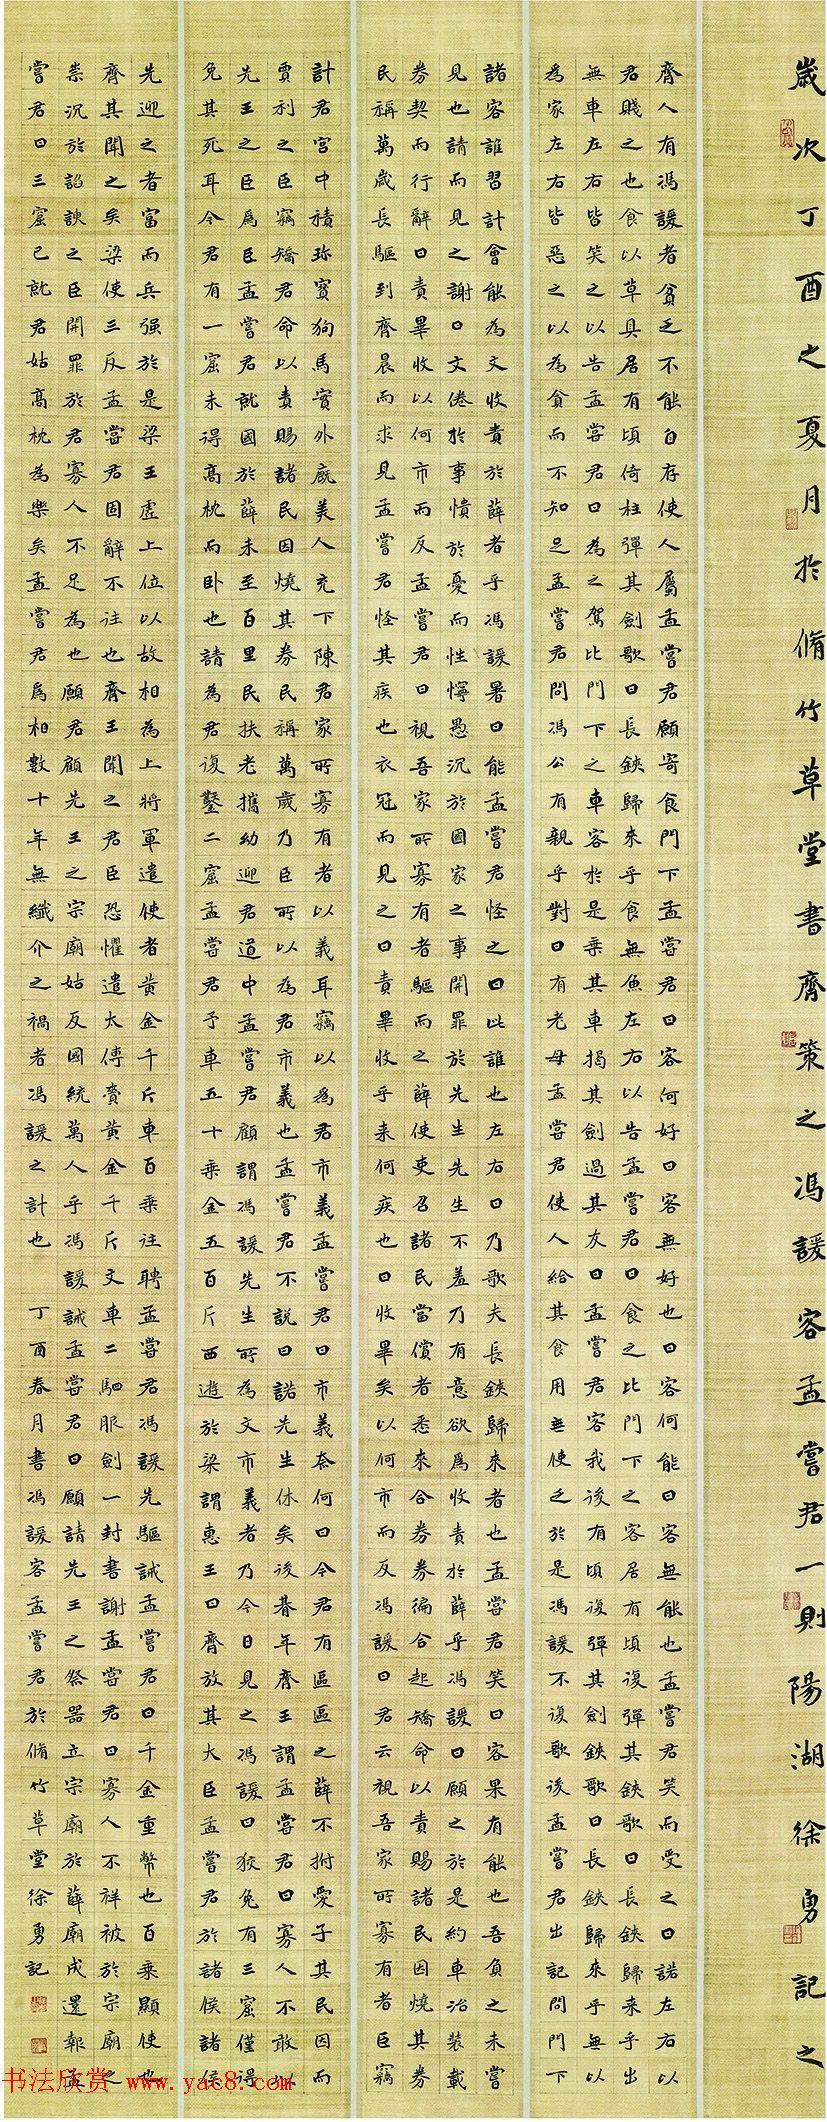 歲次丁酉之夏月於脩竹草堂書齊策之馮諼客孟嘗君一則陽湖徐勇記之
齊人有馮諼者貧乏不能自存使人屬孟嘗君願寄食門下孟嘗君曰客何好曰客無好也曰客何能曰客無能也孟嘗君笑而受之曰諾左右以
君賤之也食以草具居有頃倚柱彈其劍歌曰長鋏歸來乎食無魚左右以告孟嘗君曰食之比門下之客居有頃復彈其鋏歌曰長鋏歸来乎出
無車左右皆笑之以告孟嘗君曰為之駕比門下之車客於是乘其車揭其劍過其友曰孟嘗君客我後有頃復彈其劍鋏歌曰長鋏歸來乎無以
為家左右皆惡之以為貪而不知足孟嘗君問馮公有親乎對曰有老母孟嘗君使人給其食用無使乏於是馮諼不復歌後孟嘗君出記問門下
諸客誰習計會能為文收責於薛者乎馮諼署曰能孟嘗君怪之曰此誰也左右曰乃歌夫長鋏歸來者也孟嘗君笑曰客果有能也吾負之未嘗
見也請而見之謝曰文倦於事憒於憂而性懧愚沉於國家之事開罪於先生先生不羞乃有意欲爲收責於薛乎馮諼曰願之於是約車治裝載
券契而行辭曰責畢收以何市而反孟嘗君曰視吾家所寡有者驅而之薛使吏召諸民當償者悉來合券券徧合起矯命以責賜諸民因燒其券
民稱萬歲長驅到齊晨而求見孟嘗君怪其疾也衣冠而見之曰責畢收乎来何疾也曰收畢矣以何市而反馮諼曰君云視吾家所寡有者臣竊
計君宮中積珍寶狗馬實外廐美人充下陳君家所寡有者以義耳竊以爲君市義孟嘗君曰市義奈何曰今君有區區之薛不拊愛子其民因而
賈利之臣竊矯君命以責賜諸民因燒其券民稱萬歲乃臣所以為君市義也孟嘗君不說曰諾先生休矣後朞年齊王謂孟嘗君曰寡人不敢以
先王之臣爲臣孟嘗君就國於薛未至百里民扶老攜幼迎君道中孟嘗君顧謂馮諼先生所為文市義者乃今日見之馮諼曰狡兔有三窟僅得
免其死耳今君有一窟未得高枕而卧也請為君復鑿二窟孟嘗君予車五十乘金五百斤西遊於梁謂惠王曰齊放其大臣孟嘗君於諸侯諸侯
先迎之者富而兵强於是梁王虛上位以故相為上將軍遣使者黄金千斤車百乘往聘孟嘗君馮諼先驅誡孟嘗君曰千金重幣也百乘顯使也
齊其聞之矣梁使三反孟嘗君固辭不往也齊王聞之君臣恐懼遣太傅賫黄金千斤文車二駟服劍一封書謝孟嘗君曰寡人不祥被於宗廟之
祟沉於諂諛之臣開罪於君寡人不足為也願君顧先王之宗廟姑反國統萬人乎馮諼誡孟嘗君曰願請先王之祭器立宗廟於薛廟成還報孟
嘗君曰三窟已就君姑高枕為樂矣孟嘗君爲相數十年無纖介之禍者馮諼之計也 丁酉春月書馮諼客孟嘗君於脩竹草堂徐勇記
书法欣赏 www.yac8.com